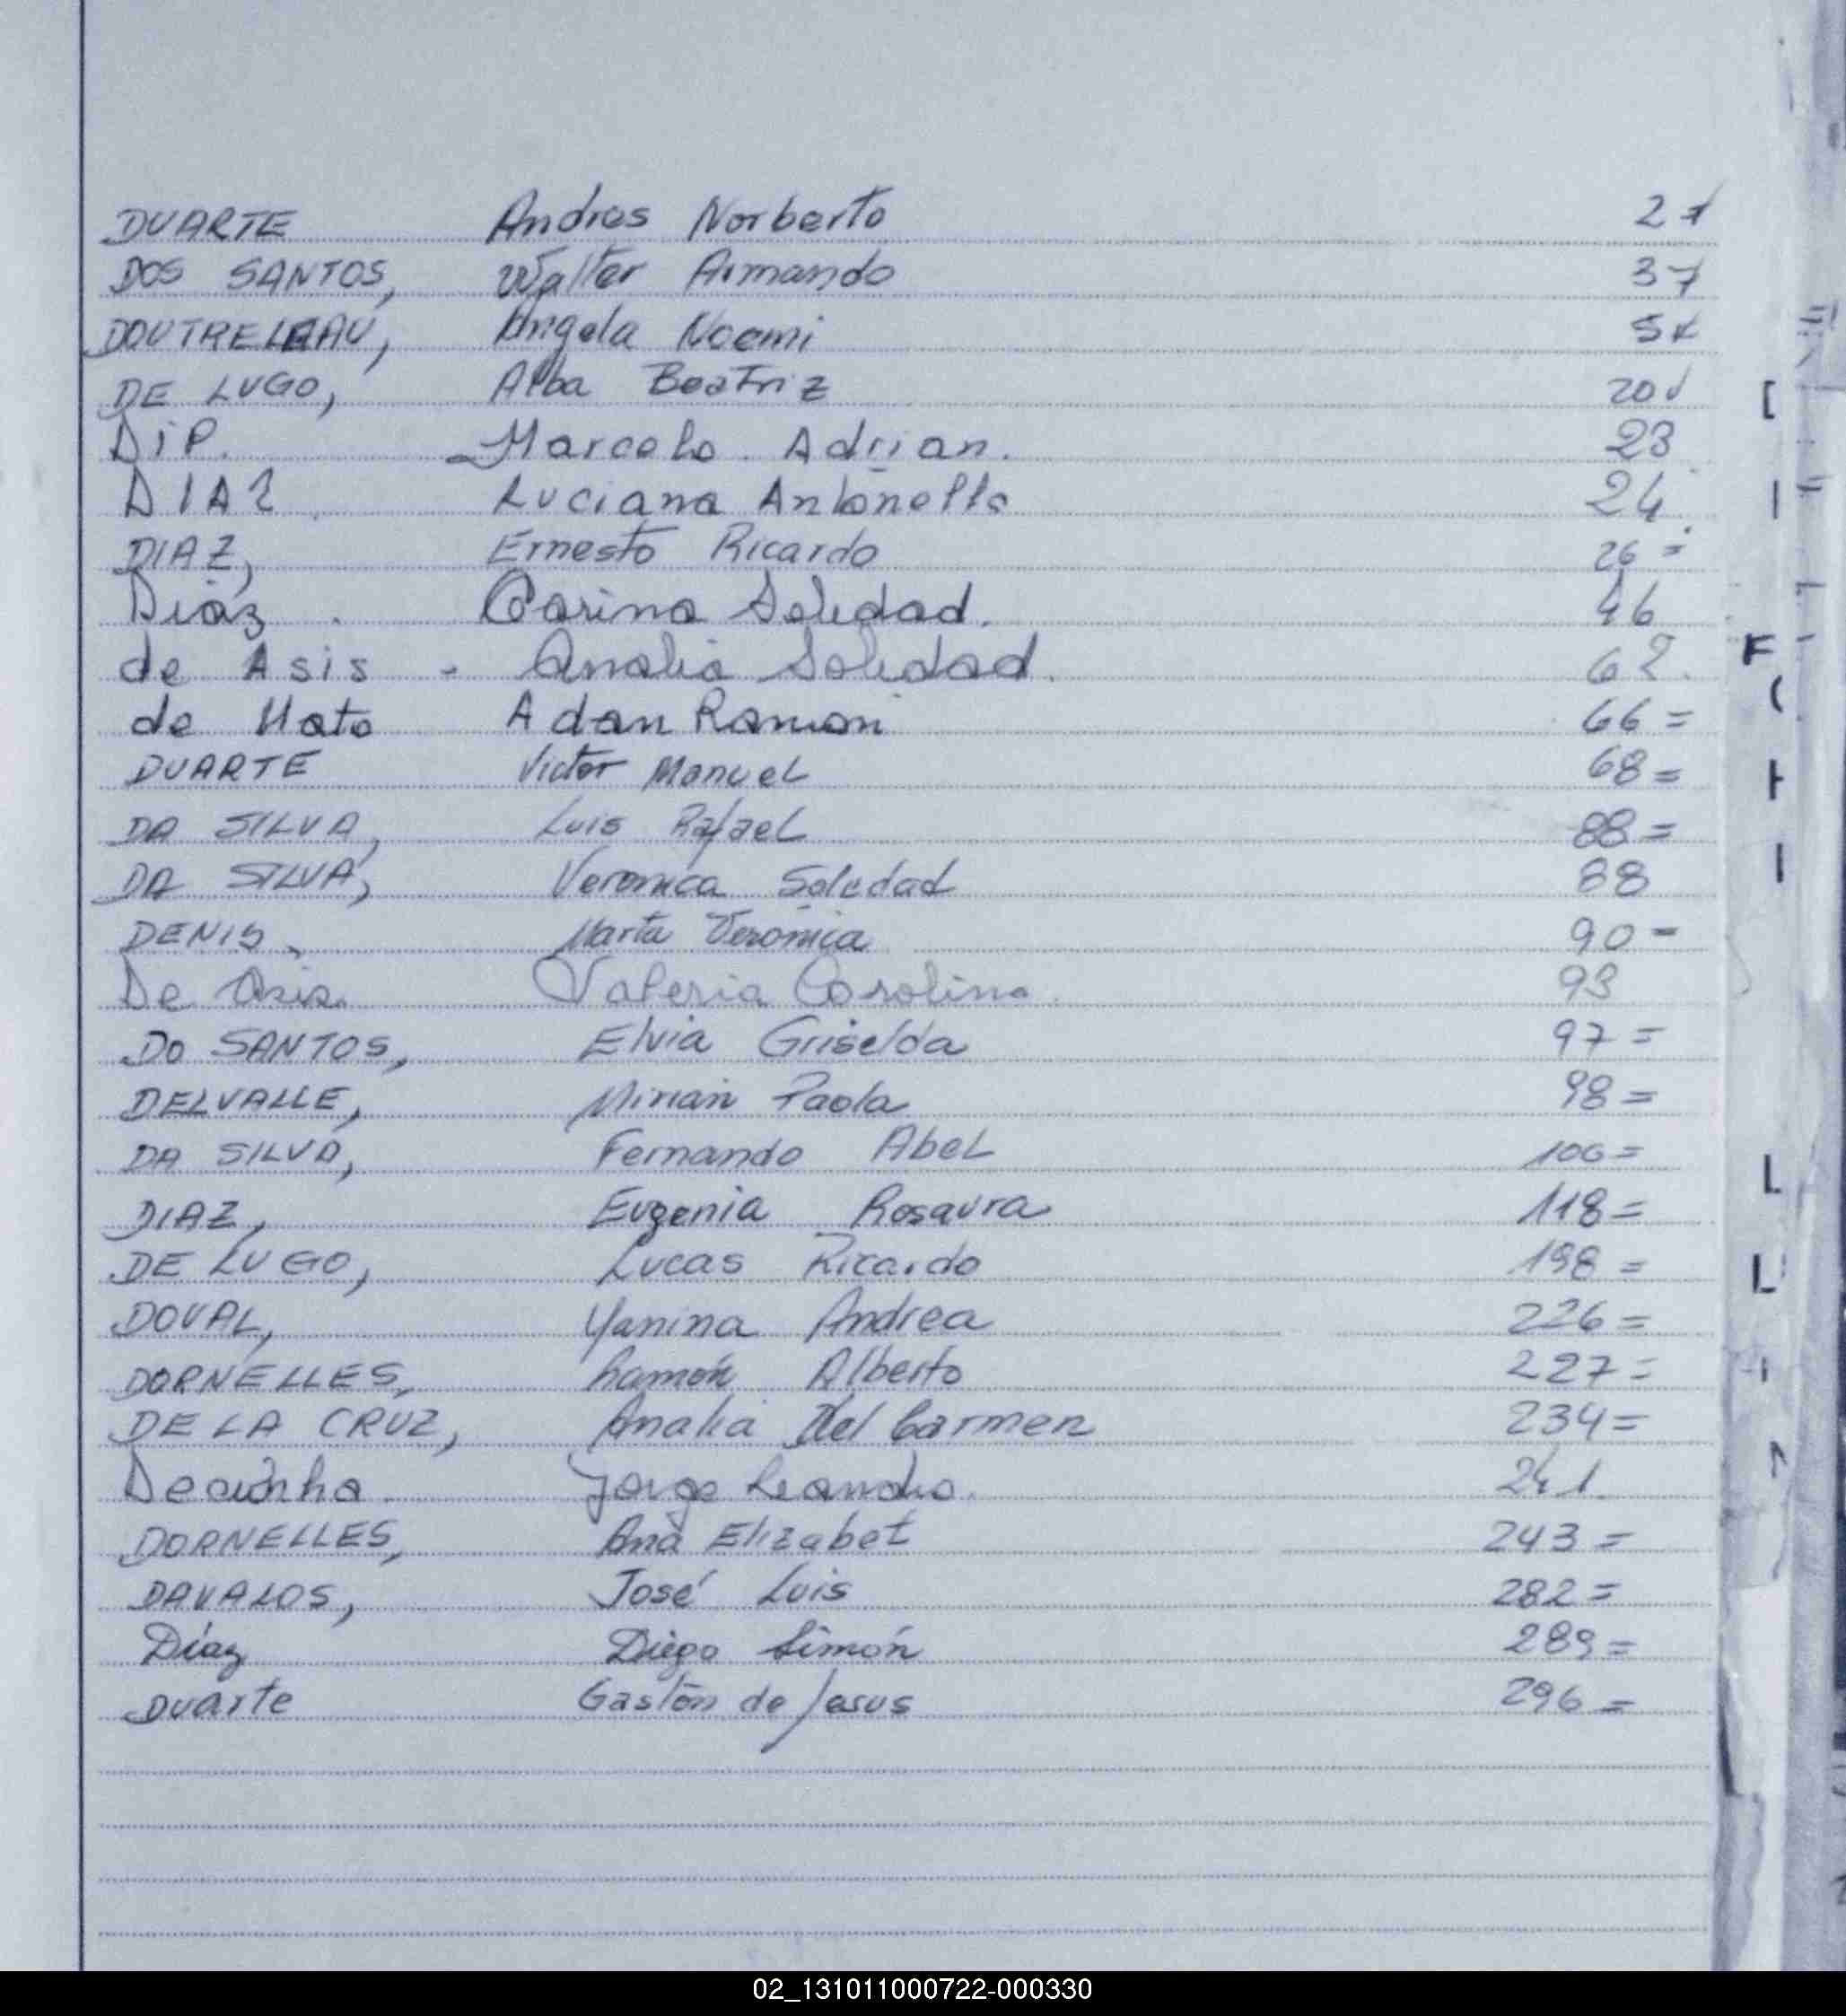 DUARTE Andres Norberto 2
DOS SANTOS, Walter Armando 3
DOUTRELEAU, Angela Noemi 5
DE LUGO, Alba Beatriz 20
DiP. Marcelo Adrian. 23
DIAZ Luciana Antonella 24
DIAZ, Ernesto Ricardo 26 =
Diaz Carina Soledad. 46
de Asis - Analia Soledad. 62.
de Mato Adan Ramon 66 =
DUARTE Victor Manuel 68 =
DA SILVA, Luis Rafael 88 =
DA SILVA, Veronica Soledad 88
DENIS, Marta Veronica 90 -
De Asis Valeria Carolina 93
DO SANTOS, Elvia Griselda 97 =
DELVALLE, Mirian Paola 98 =
DA SILVA, Fernando Abel 106 =
DIAZ, Eugenia Rosaura 118 =
DE LUGO, Lucas Ricardo 198 =
DOVAL, Yanina Andrea 226 =
DORNELLES, Ramón Alberto 227 =
DE LA CRUZ, Analia Del Carmen 234 =
Decunha Jorge Leandro. 241.
DORNELLES, Ana Elizabet 243 =
DAVALOS, José Luis 282 =
Díaz Diego Simón 289 =
Duarte Gastón de Jesus 296 =
02_131011000722-000330